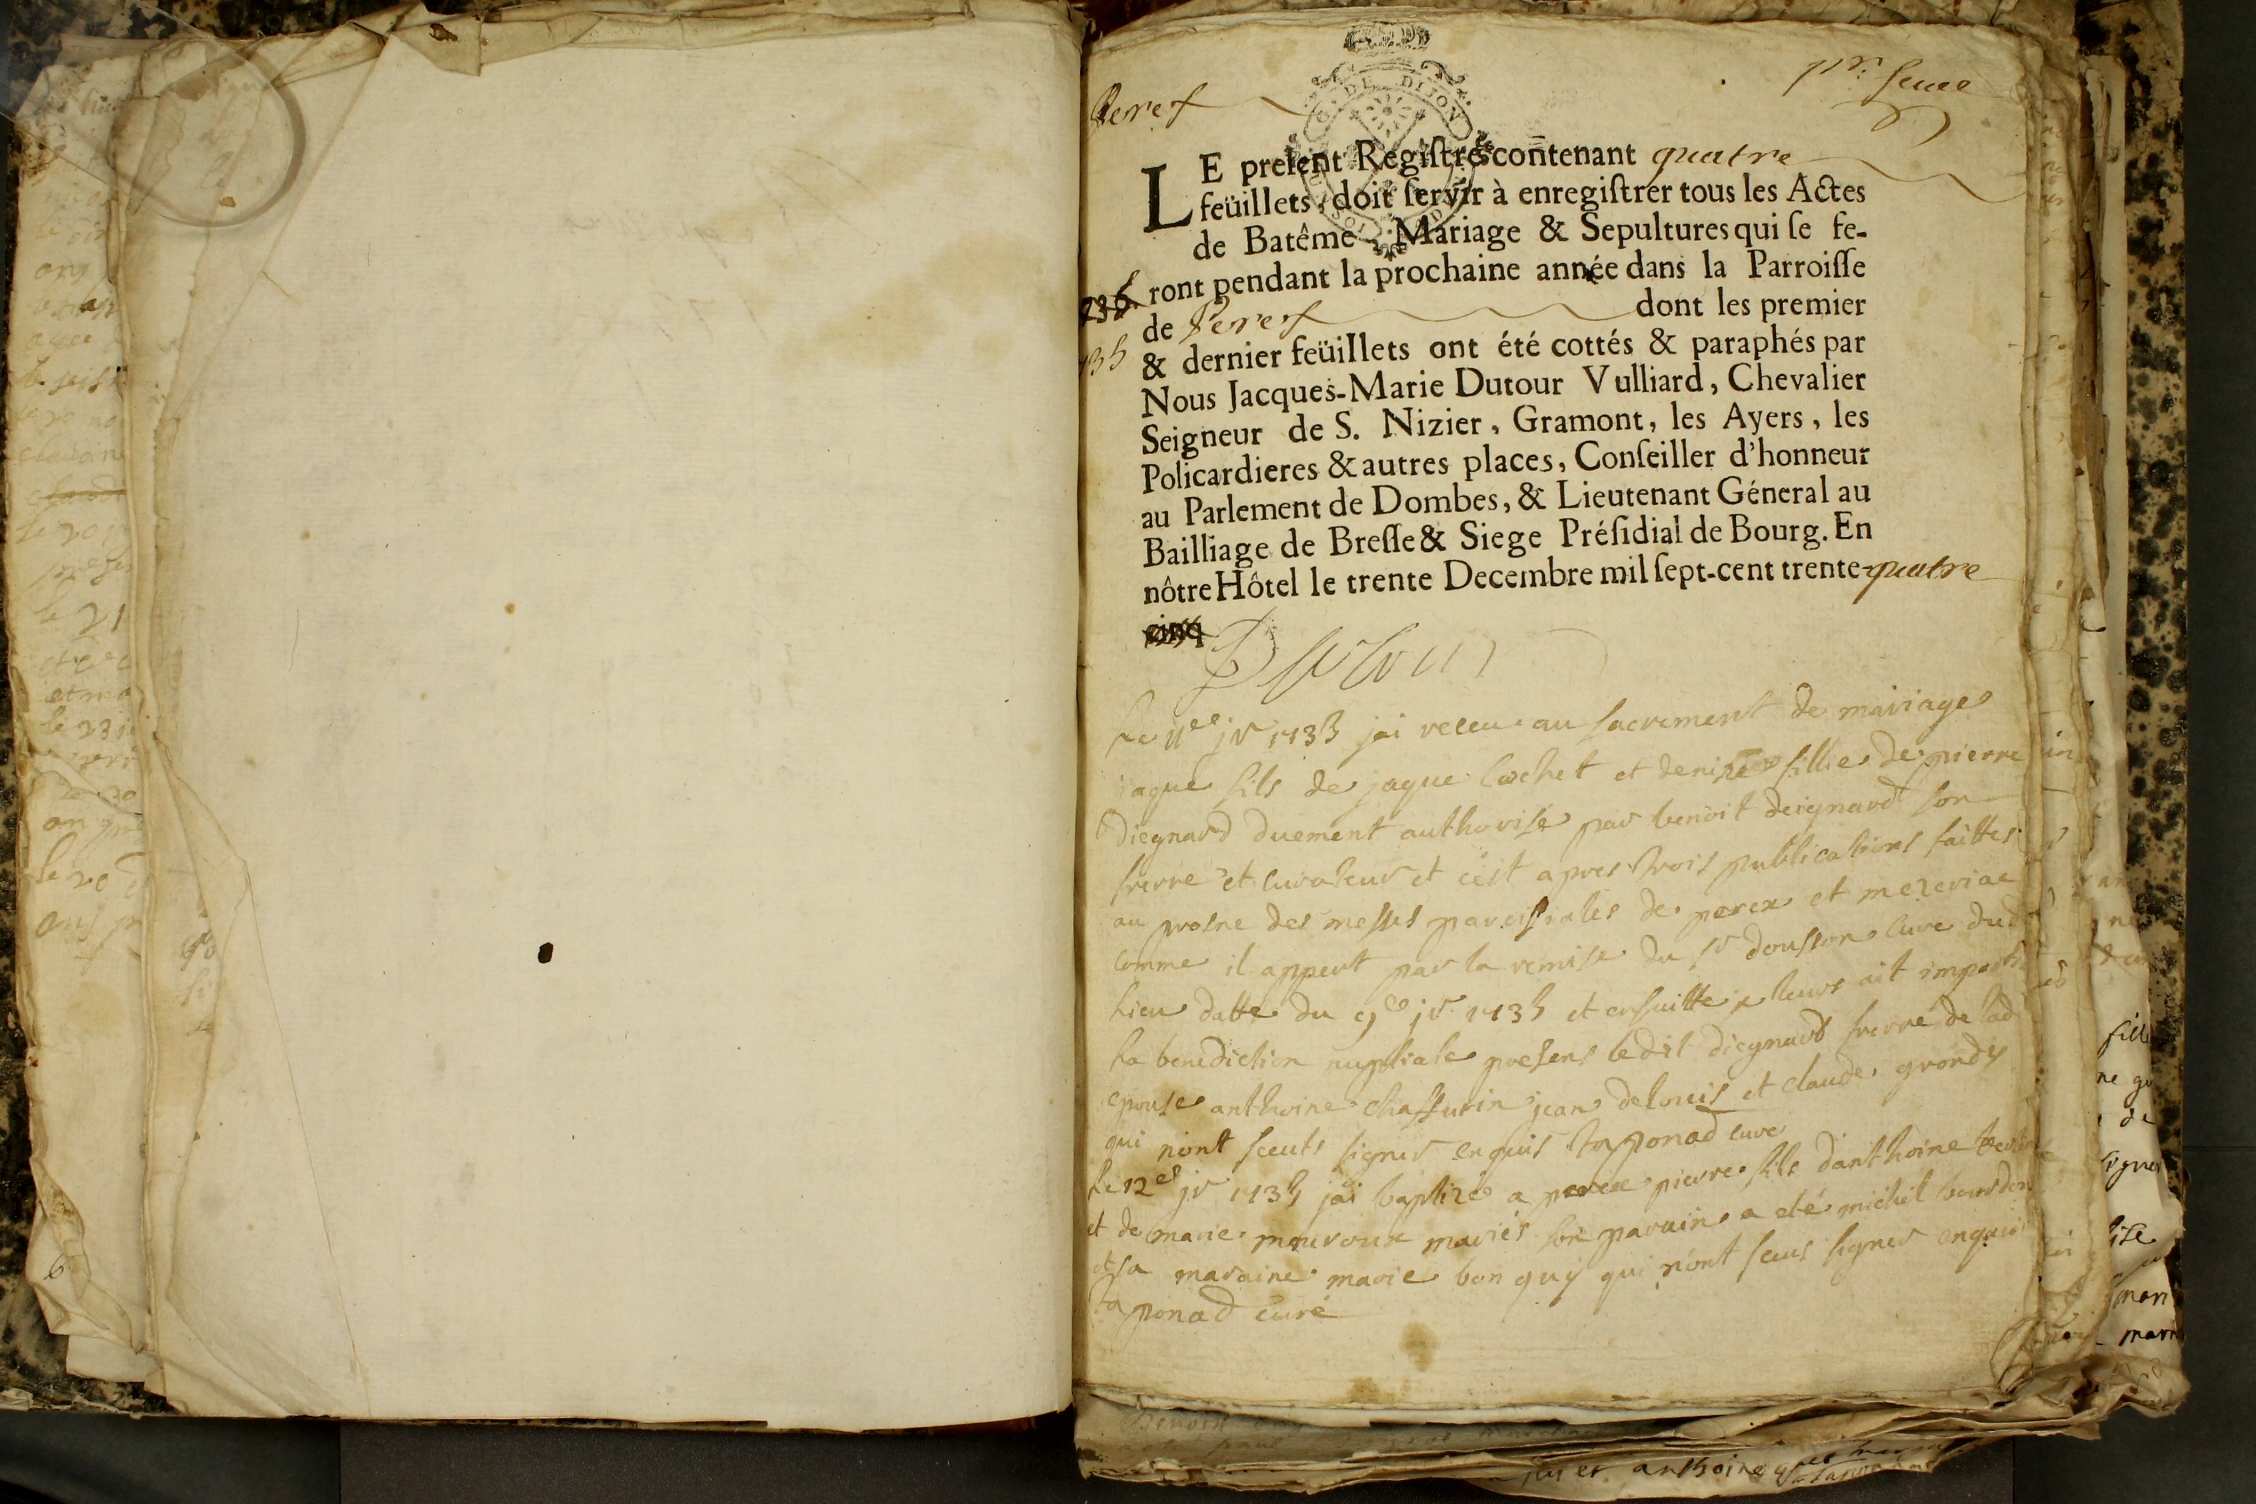 Perex
pr. feuee
G. DE DIJON
LE present Registre contenant quatre
feüillets, doit servir à enregistrer tous les Actes
de Batême, Mariage & Sepultures qui se fe-
ront pendant la prochaine année dans la Parroisse
de Perex dont les premier
& dernier feüillets ont été cottés & paraphés par
Nous Jacques-Marie Dutour Vulliard, Chevalier
Seigneur de S. Nizier, Gramont, les Ayers, les
Policardieres & autres places, Conseiller d'honneur
au Parlement de Dombes, & Lieutenant Géneral au
Bailliage de Bresse & Siege Présidial de Bourg. En
nôtre Hôtel le trente Decembre mil sept-cent trente-quatre
cinq
Dutour
Le 11e jr 1735 jai receu au sacrement de mariage
jaque fils de jaque Cochet et denise fillie de pierre
diegnard duement authorise par benoit deignard son
frerre et curateur et cest apres trois publications faittes
au prosne des messes paroissiales de perex et mezeriac
comme il appert par la remise du sr dousson cure dud
lieu datte du 9e jr 1735 et ensuitte je leurs ait imparti
la benediction nuptiale presens ledit diegnard frerre de lad
epouse anthoine chassurin jean delouis et claude grondy
qui niont sceuts signer enquis taponad cure
Le 12e jr 1735 jai baptizé a perex pierre fils danthoine
et de marie mouroux mariés son parain a eté michel bourdon
et sa maraine marie bon guy qui niont sceus signer enquis
taponad curé